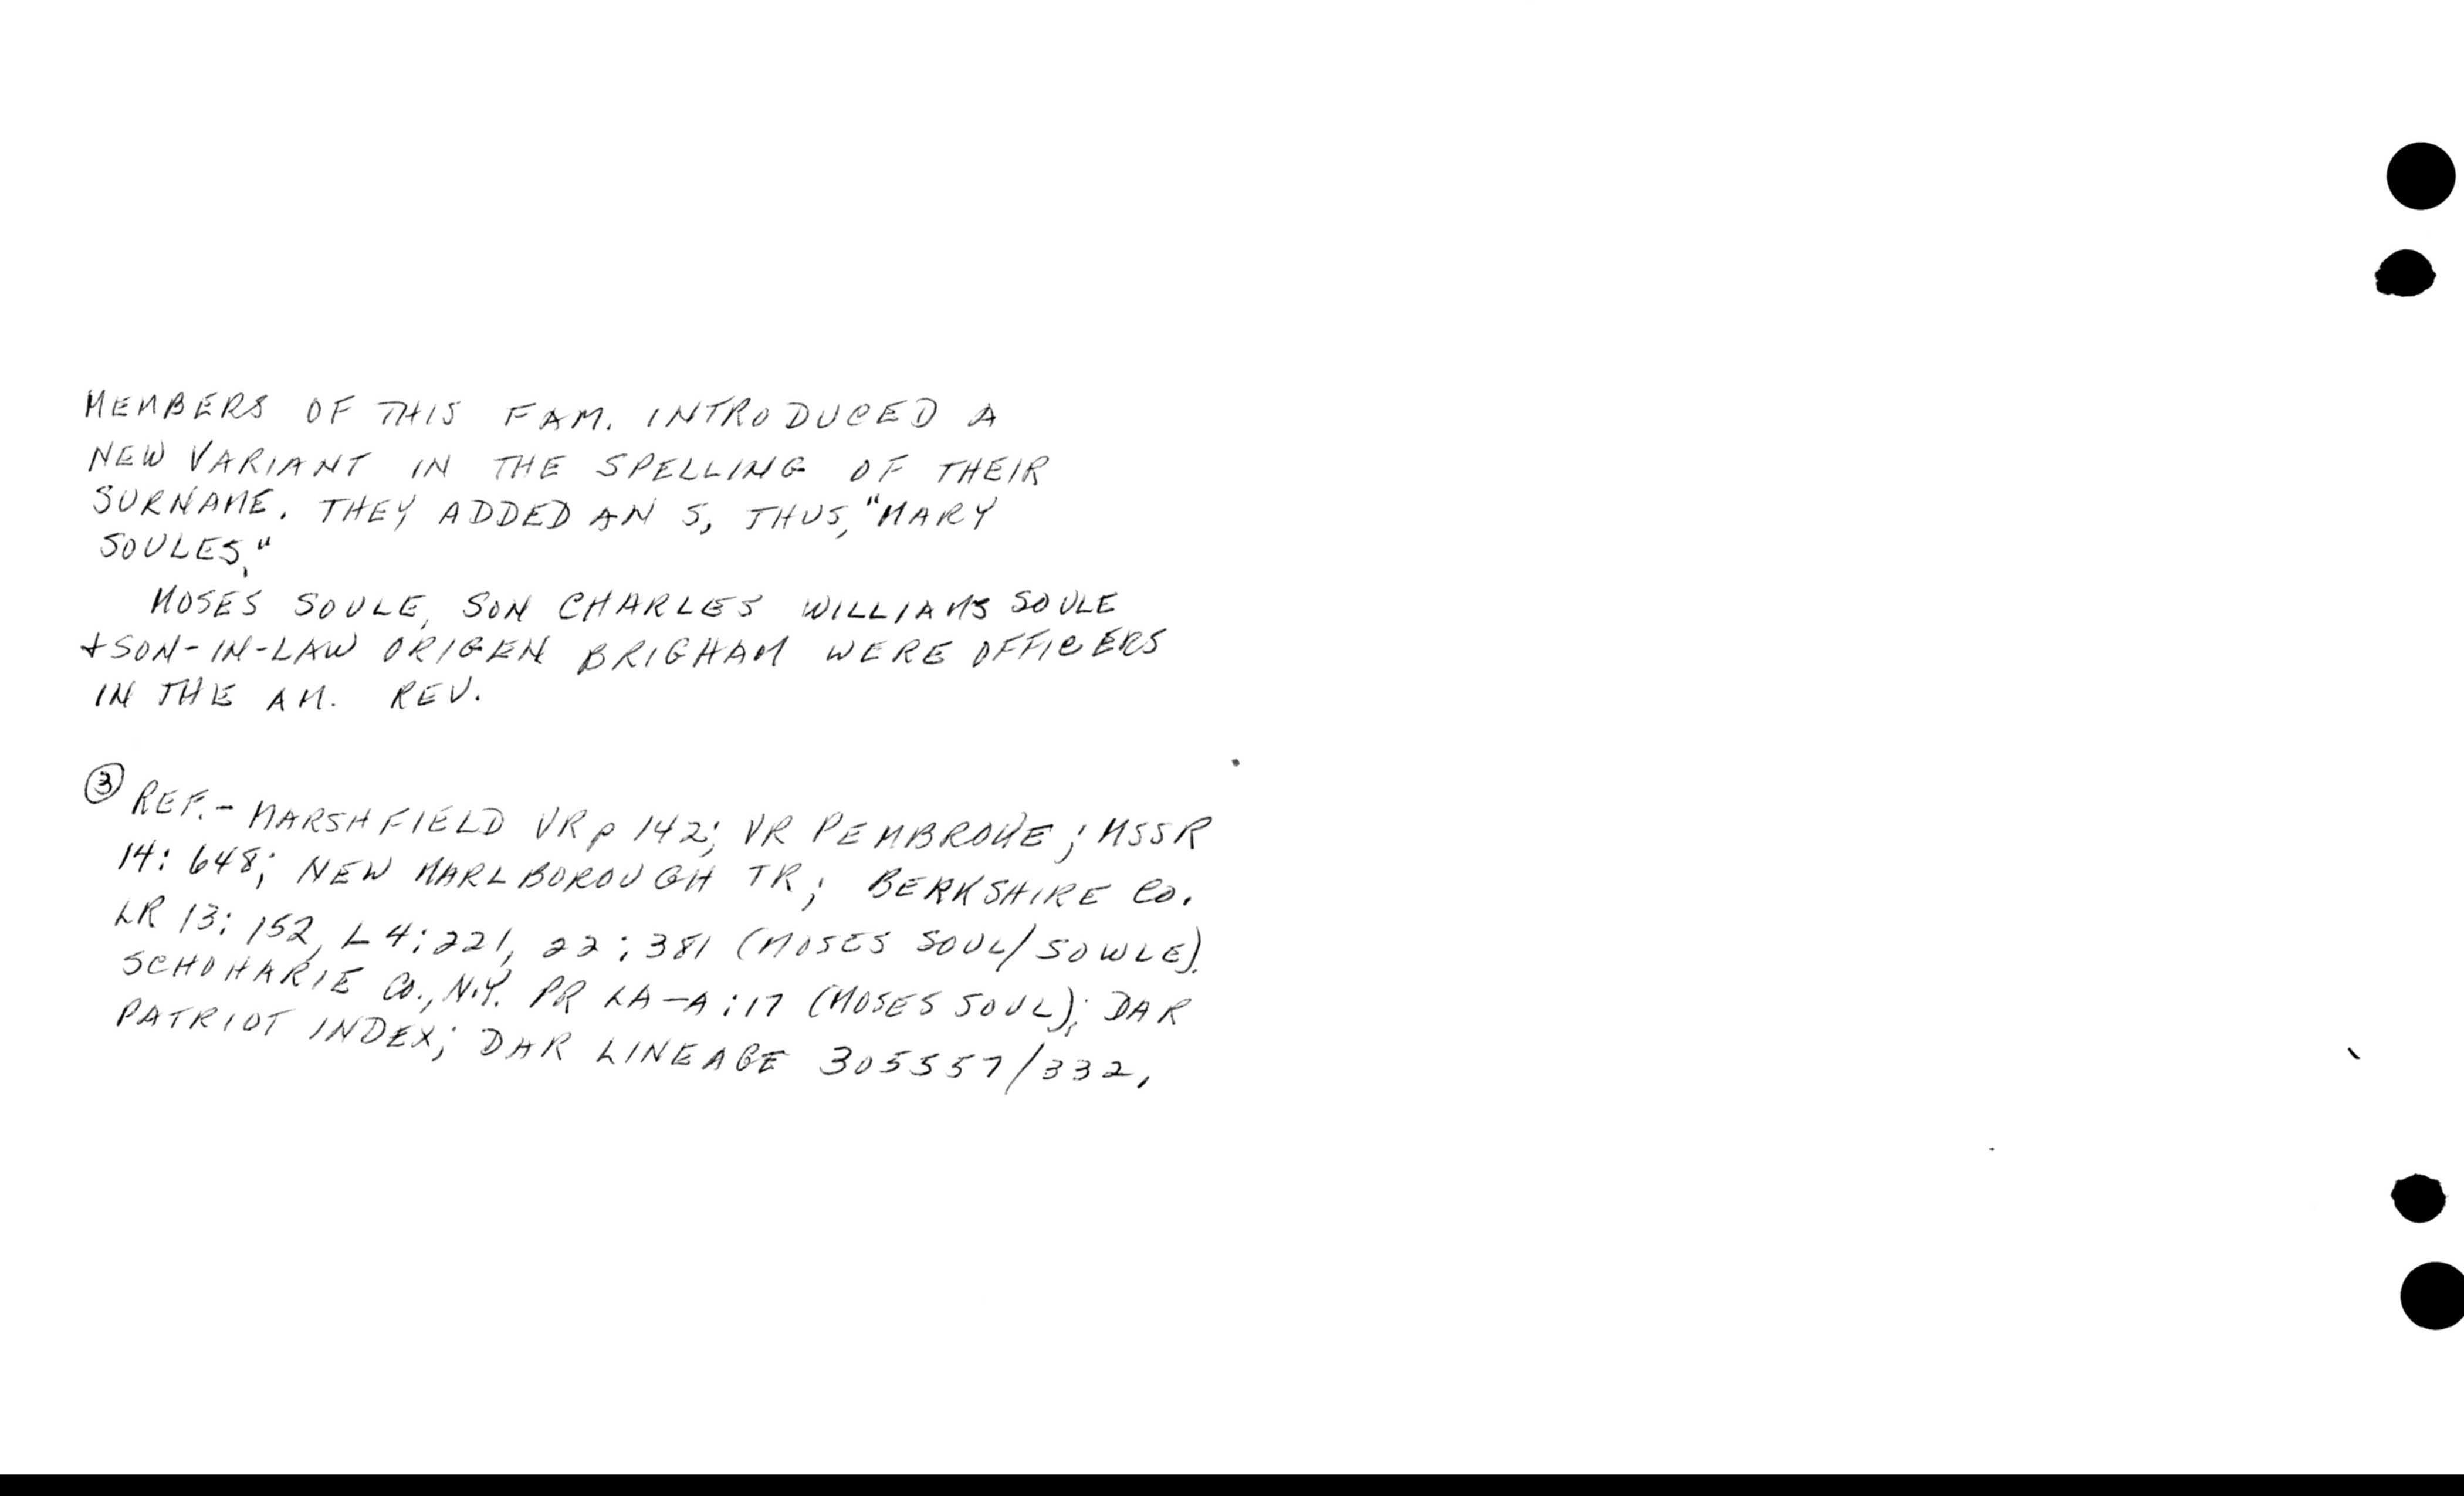 MEMBERS OF THIS FAM. INTRODUCED A
NEW VARIANT IN THE SPELLING OF THEIR
SURNAME. THEY ADDED AN S, THUS, "MARY
SOULES."
MOSES SOULE, SON CHARLES WILLIAMS SOULE
+ SON-IN-LAW ORIGEN BRIGHAM WERE OFFICERS
IN THE AM. REV.
③ REF.- MARSHFIELD VR p 142; VR PEMBROKE; MSSR
14: 648; NEW MARLBOROUGH TR; BERKSHIRE CO.
LR 13: 152, L4: 221, 22: 381 (MOSES SOUL/SOWLE).
SCHOHARIE CO., N.Y. PR LA-A: 17 (MOSES SOUL); DAR
PATRIOT INDEX; DAR LINEAGE 305557/332,